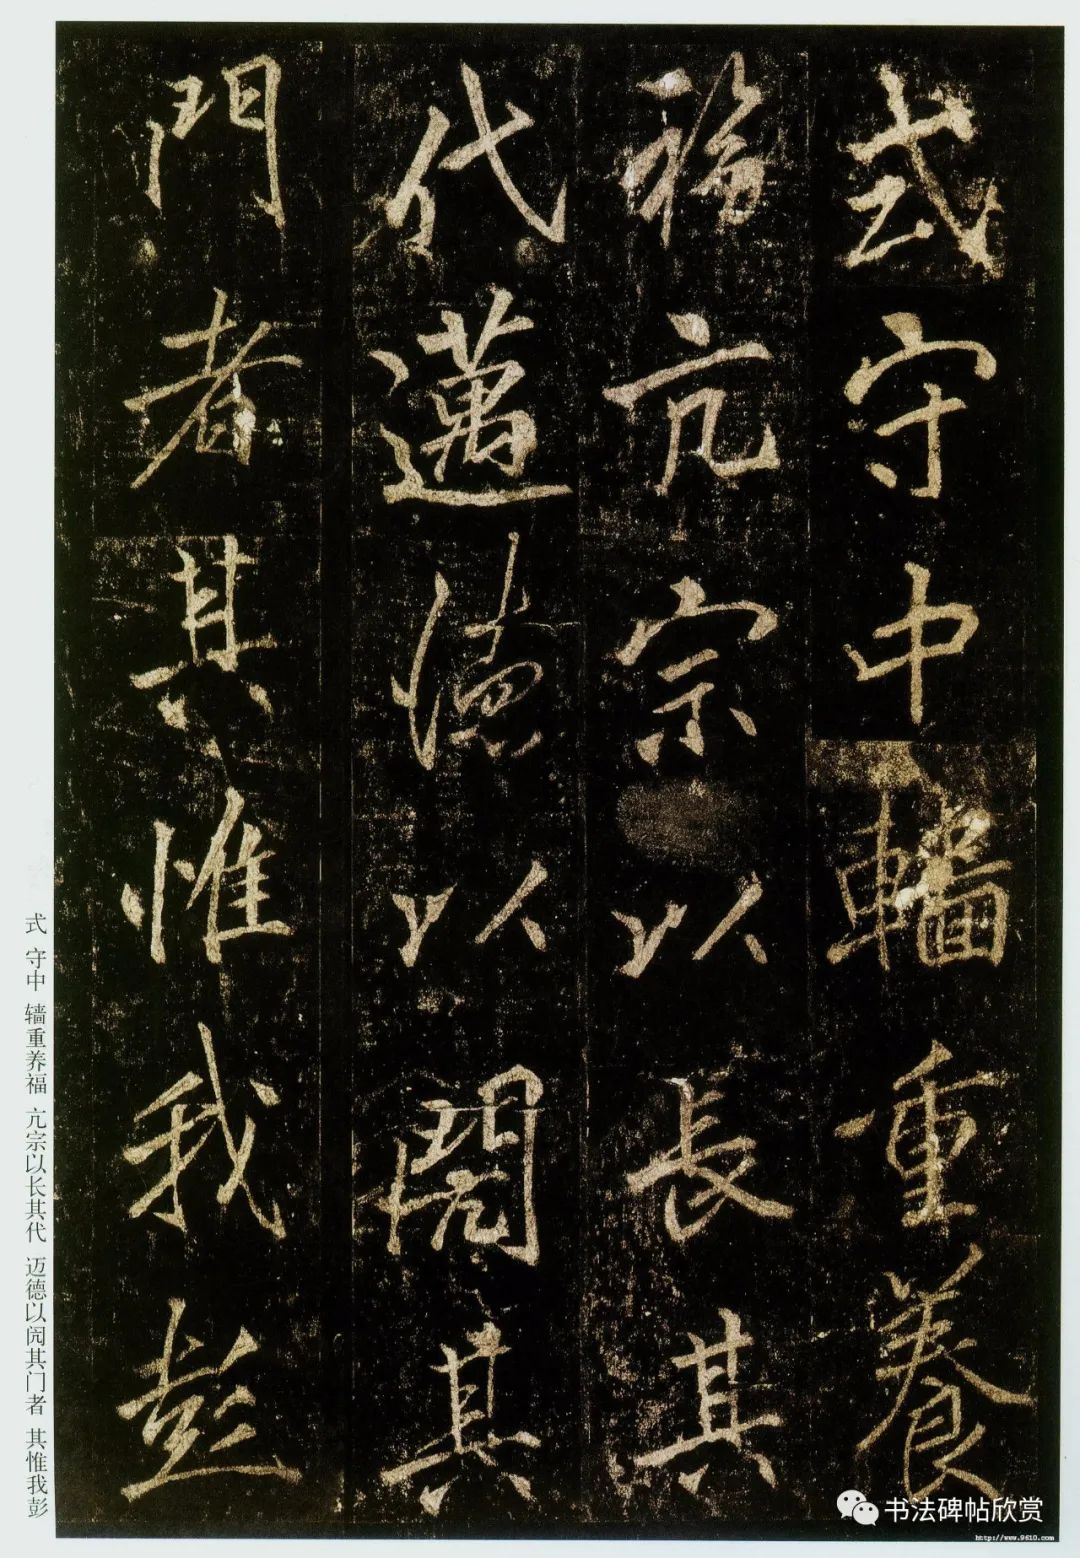 式守中轖重養
福亢宗以長其
代邁德以閌其
門者其惟我彭
式 守中 轖重养福 亢宗以长其代 迈德以闶其门者 其惟我彭
书法碑帖欣赏
http://www.9610.com